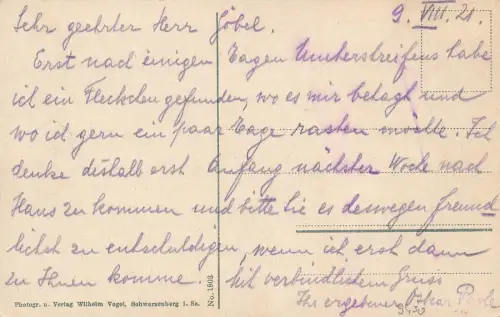 9. VIII. 21.
Sehr geehrter Herr Göbel.
Erst nach einigen Tagen Umherstreifens habe
ich ein Fleckchen gefunden, wo es mir behagt und
wo ich gern ein paar Tage rasten möchte. Ich
denke deshalb erst Anfang nächster Woche nach
Haus zu kommen und bitte Sie es deswegen freund
lichst zu entschuldigen, wenn ich erst dann
zu Ihnen komme. Mit verbindlichem Gruss
Ihr ergebener Oskar
Photogr. u. Verlag Wilhelm Vogel, Schwarzenberg i. Sa.
No. 1803